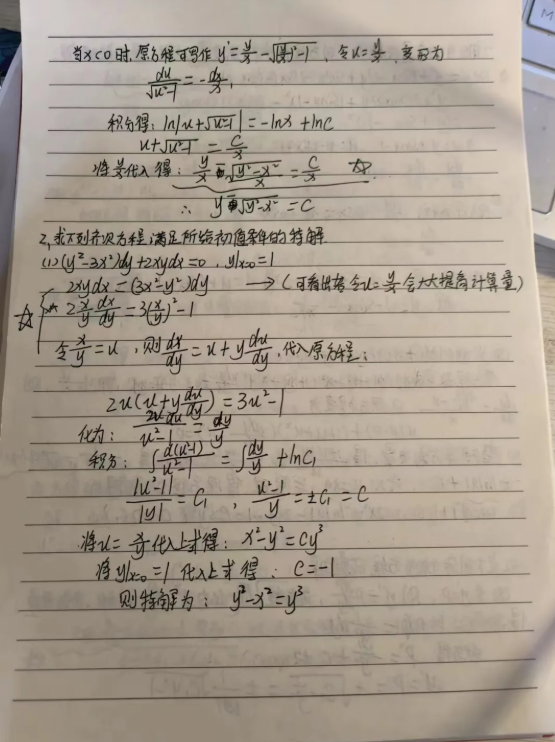 当x<0时,原方程可写作 y'=y/x-√((y/x)²-1),令u=y/x,变形为
du/√(u²-1)=-dx/x,
积分得:ln|u+√(u²-1)|=-lnx+lnC
u+√(u²-1)=C/x
将u代入得:y/x √(y²-x²)/x=C/x ☆
∴ y √(y²-x²)=C
2,求下列齐次方程满足所给初值条件的特解
(1)(y²-3x²)dy+2xydx=0,y|x=0=1
2xydx=(3x²-y²)dy →(可看出若令u=y/x会大大提高计算量)
☆ 2 x/y dx/dy=3(x/y)²-1
令x/y=u,则dx/dy=u+y du/dy,代入原方程:
2u(u+y du/dy)=3u²-1
化为:2udu/(u²-1)=dy/y
积分:∫d(u²-1)/(u²-1)=∫dy/y+lnC₁
|u²-1|/|y|=C₁,(u²-1)/y=±C₁=C
将u=x/y代入上式得:x²-y²=Cy³
将y|x=0=1代入上式得:C=-1
则特解为:y²-x²=y³